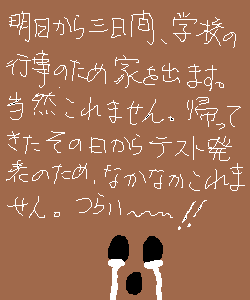 明日から三日間、学校の
行事のため家を出ます。
当然これません。帰って
きたその日からテスト発
表のため、なかなかこれま
せん。つらい〜〜!!